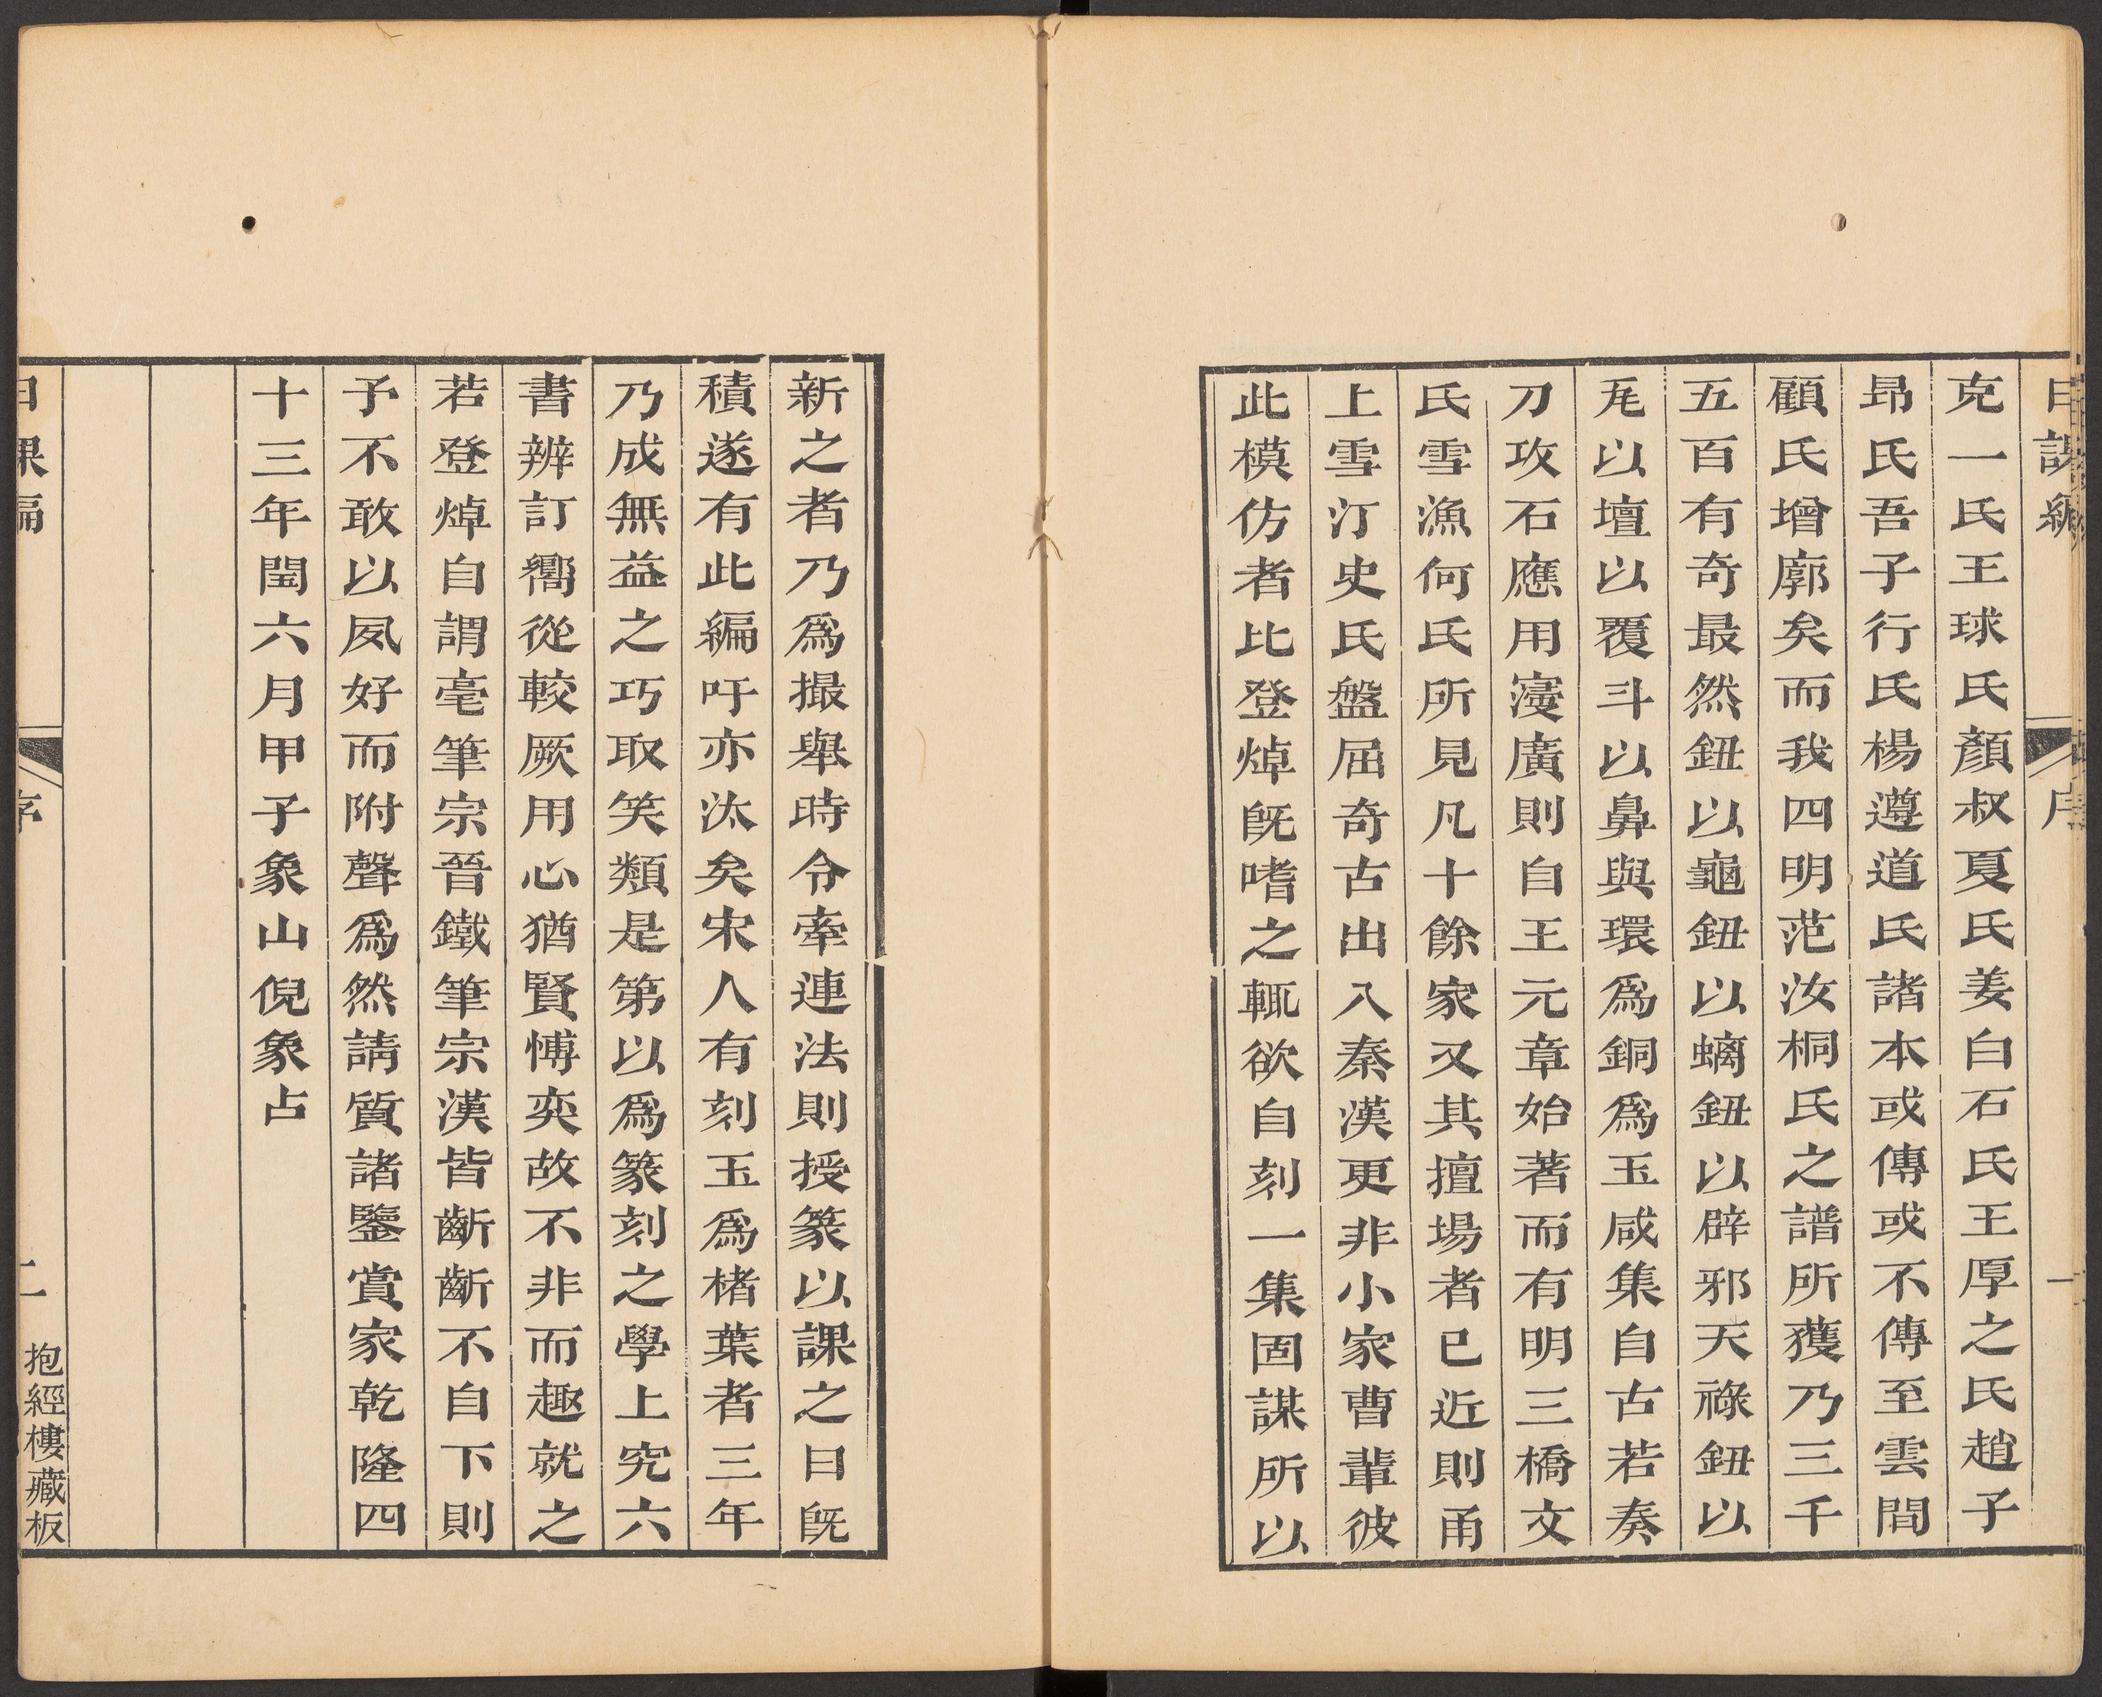 日課編 序 一
克一氏王球氏顏叔夏氏姜白石氏王厚之氏趙子
昂氏吾子行氏楊遵道氏諸本或傳或不傳至雲間
顧氏增廓矣而我四明范汝桐氏之譜所獲乃三千
五百有奇最然鈕以龜鈕以螭鈕以辟邪天祿鈕以
瓦以壇以覆斗以鼻與環爲銅爲玉咸集自古若奏
刀攻石應用寖廣則自王元章始著而有明三橋文
氏雪漁何氏所見凡十餘家又其擅場者已近則甬
上雪汀史氏盤屈奇古出入秦漢更非小家曹輩彼
此模仿者比登焯旣嗜之輒欲自刻一集固謀所以
新之者乃爲撮舉時令牽連法則授篆以課之日旣
積遂有此編吁亦汰矣宋人有刻玉爲楮葉者三年
乃成無益之巧取笑類是第以爲篆刻之學上究六
書辨訂嚮從較厥用心猶賢博奕故不非而趣就之
若登焯自謂毫筆宗晉鐵筆宗漢皆齗齗不自下則
予不敢以夙好而附聲爲然請質諸鑒賞家乾隆四
十三年閏六月甲子象山倪象占
日課編 序 二 抱經樓藏板